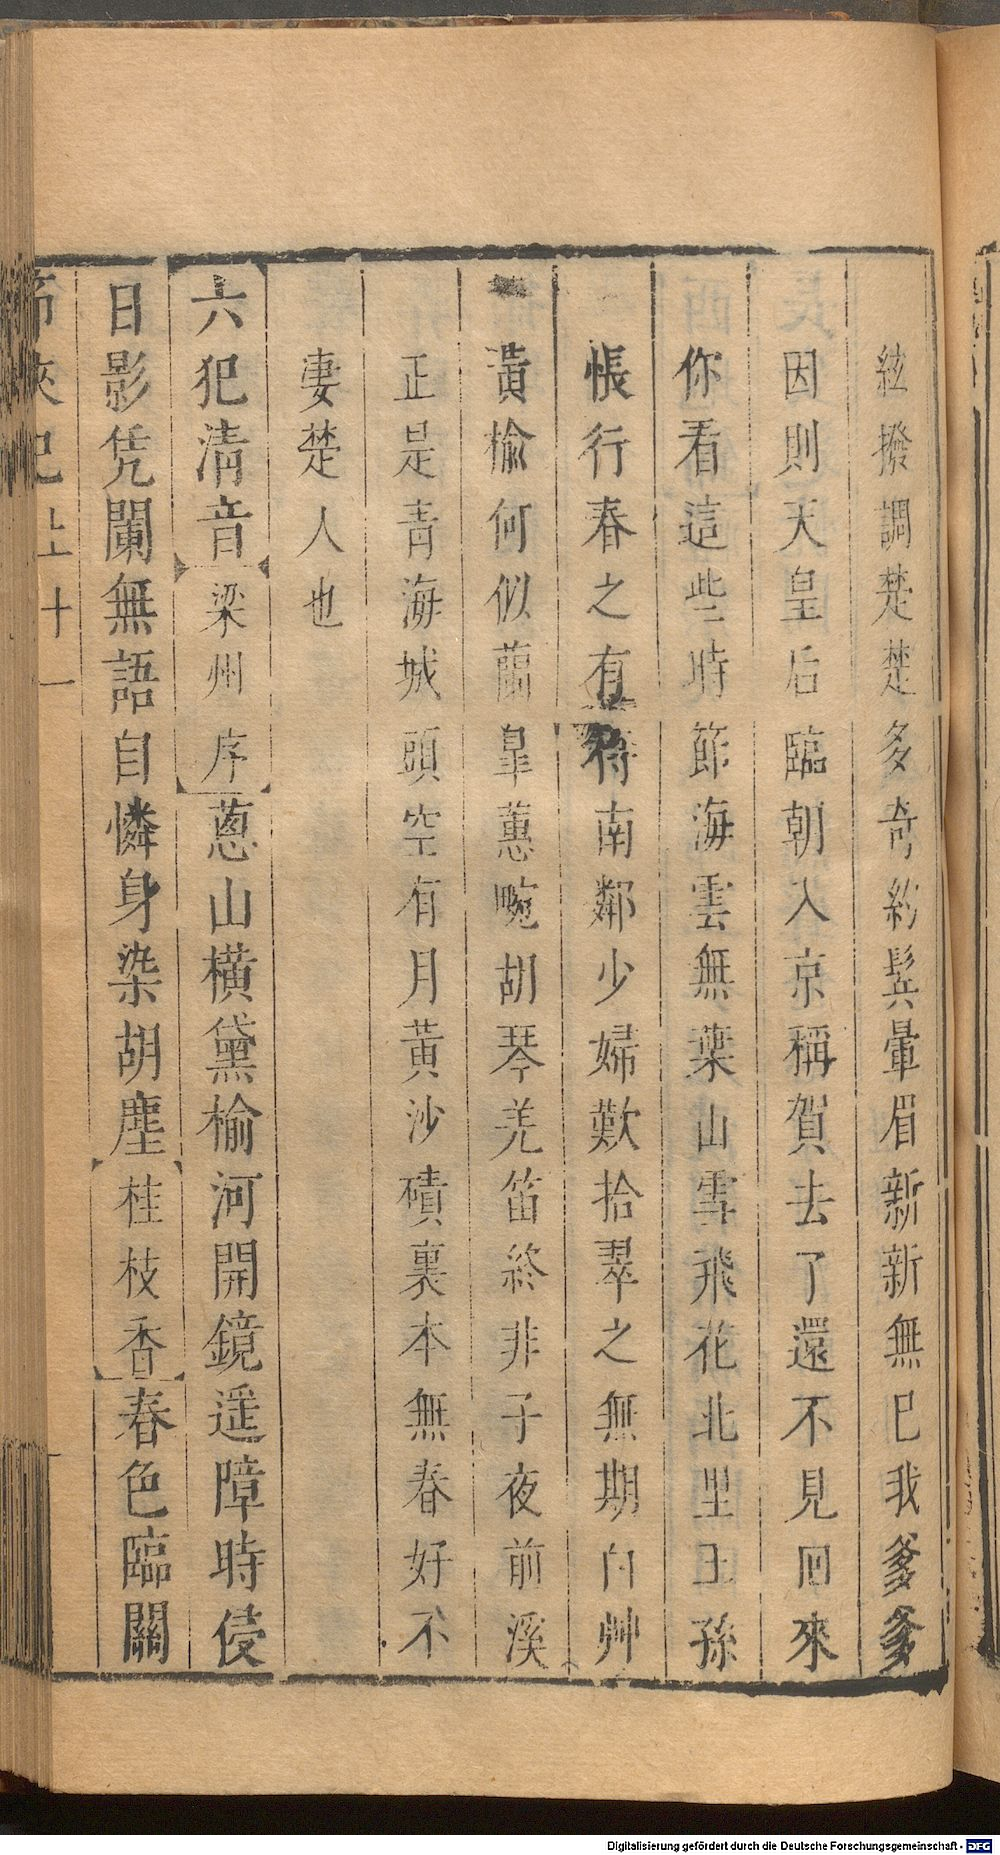 絃撥調楚楚多奇約鬓暈眉新新無巳我爹爹
因則天皇后臨朝入京稱賀去了還不見回來
你看這些時節海雲無葉山雪飛花北里王孫
悵行春之有待南鄰少婦歎拾翠之無期白艸
黃楡何似蘭臯蕙畹胡琴羌笛終非子夜前溪
正是青海城頭空有月黃沙磧裏本無春好不
淒楚人也
六犯清音梁州序蔥山橫黛楡河開鏡遥障時侵
日影凭闌無語自憐身染胡塵桂枝香春色臨關
上十一
Digitalisierung gefördert durch die Deutsche Forschungsgemeinschaft - DFG